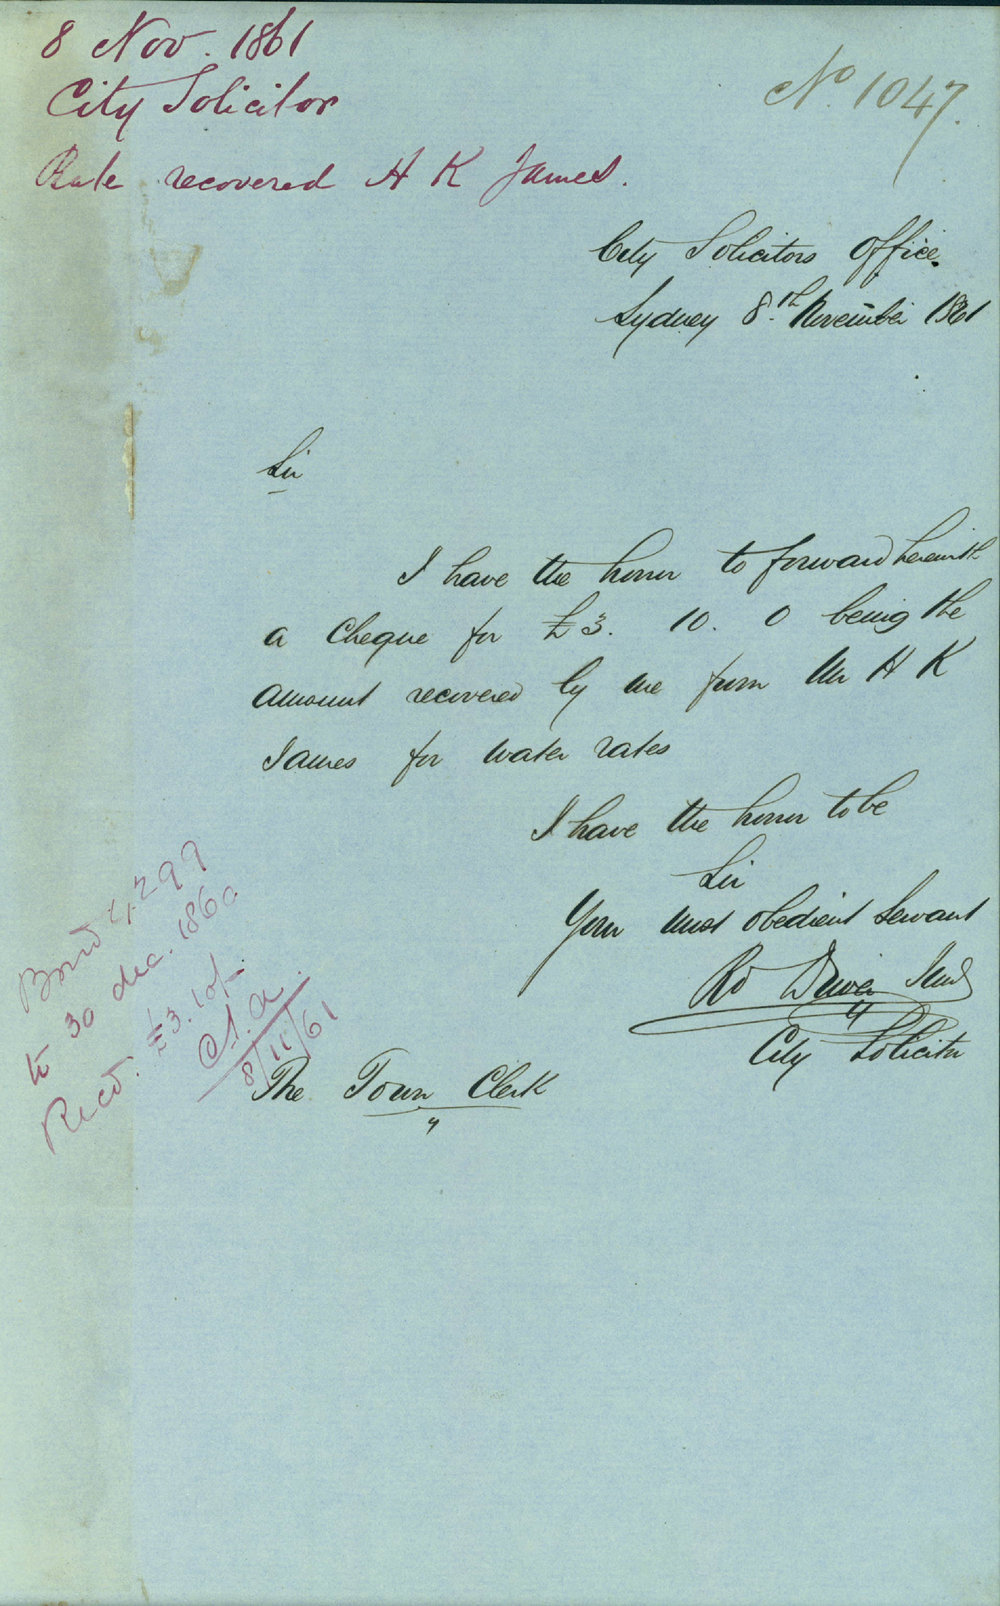 8 Nov. 1861
City Solicitor
Rate recovered H K James.
No. 1047.
City Solicitors Office.
Sydney 8th November 1861
Sir
I have the honor to forward herewith
a Cheque for £3. 10. 0 being the
amount recovered by me from Mr H K
James for water rates
I have the honor to be
Sir
Your most obedient Servant
Rd Driver Junr
City Solicitor
The Town Clerk
to 30 dec. 1860
Recd. £3.10/-
8/11/61